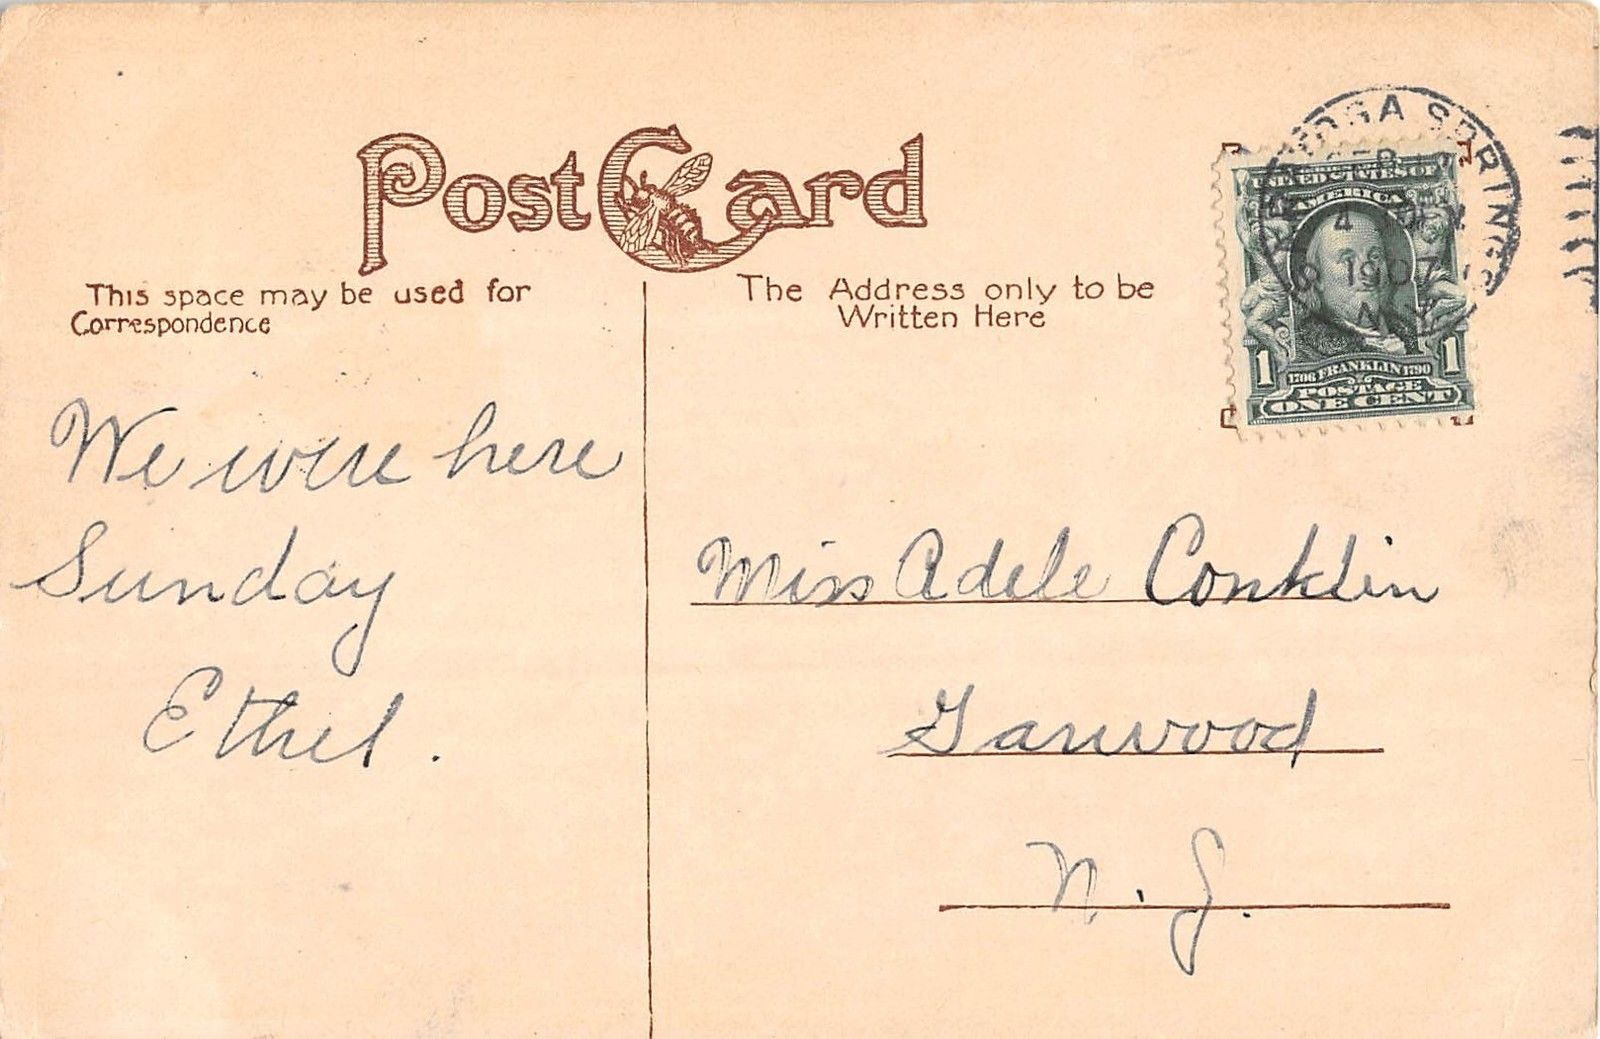 Post Card
This space may be used for
Correspondence
The Address only to be
Written Here
SPRINGS
1907
N.Y.
UNITED STATES OF
AMERICA
1 1
1706 FRANKLIN 1790
POSTAGE
ONE CENT
We were here
Sunday
Ethel.
Miss Adele Conklin
Garwood
N. J.